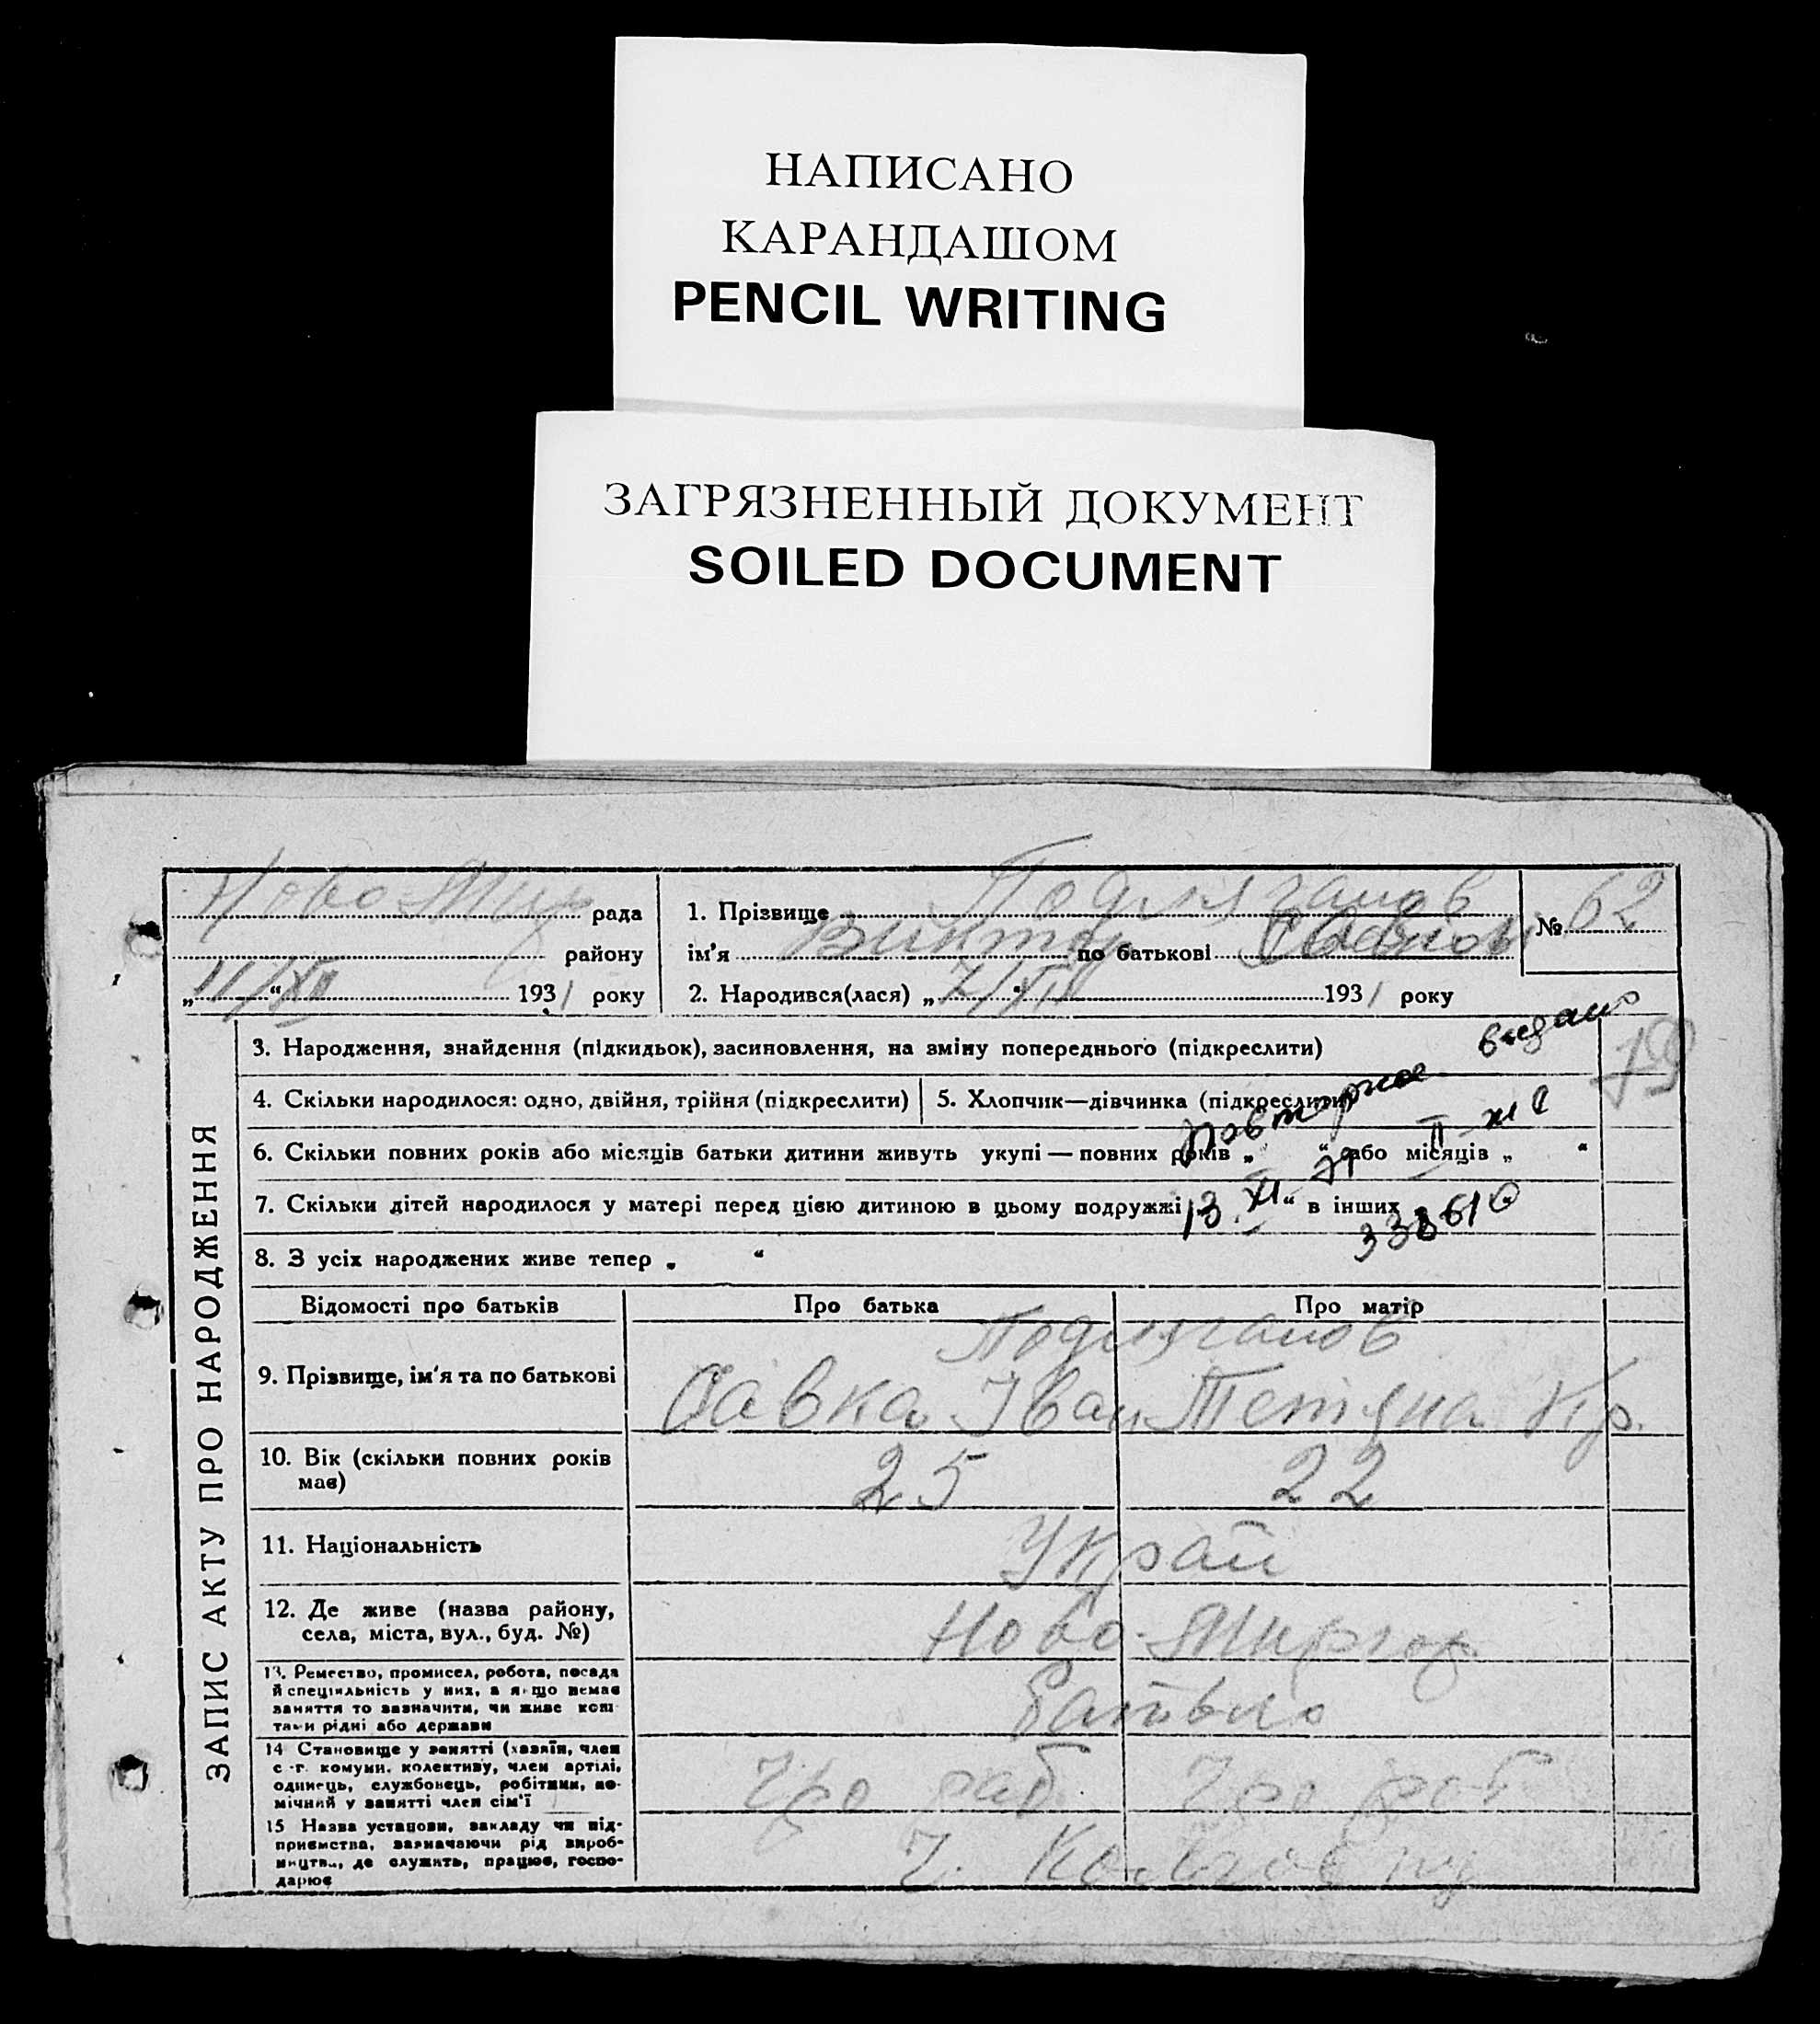 НАПИСАНО
КАРАНДАШОМ
PENCIL WRITING
ЗАГРЯЗНЕННЫЙ ДОКУМЕНТ
SOILED DOCUMENT
ЗАПИС АКТУ ПРО НАРОДЖЕННЯ
Ново-Мир рада
району
„11/XII“ 1931 року
1. Прізвище
ім'я Виктор по батькові
№ 62
2. Народився(лася) „7/XII“ 1931 року
видано
3. Народження, знайдення (підкидьок), засиновлення, на зміну попереднього (підкреслити)
79
4. Скільки народилося: одно, двійня, трійня (підкреслити)
5. Хлопчик—дівчинка (підкреслити)
повторное
6. Скільки повних років або місяців батьки дитини живуть укупі — повних років „ “ або місяців „ “
7. Скільки дітей народилося у матері перед цією дитиною в цьому подружжі “ в інших
13.XI
8. З усіх народжених живе тепер „ “
Відомості про батьків Про батька Про матір
9. Прізвище, ім'я та по батькові
Савка Іван Тетяна Кр.
10. Вік (скільки повних років має)
25 22
11. Національність
Украй
12. Де живе (назва району,
села, міста, вул., буд. №)
Ново-Миргор
13. Ремество, промисел, робота, посада
й спеціяльність у них, а якщо немає
заняття то зазначити, чи живе кош-
тами рідні або держави
14 Становище у занятті (хазяїн, член
с.-г. комуни, колективу, член артілі,
одинець, службовець, робітник, по-
мічний у занятті член сім'ї
15 Назва установи, закладу чи під-
приємства, зазначаючи рід вироб-
ництва, де служить, працює, госпо-
дарює